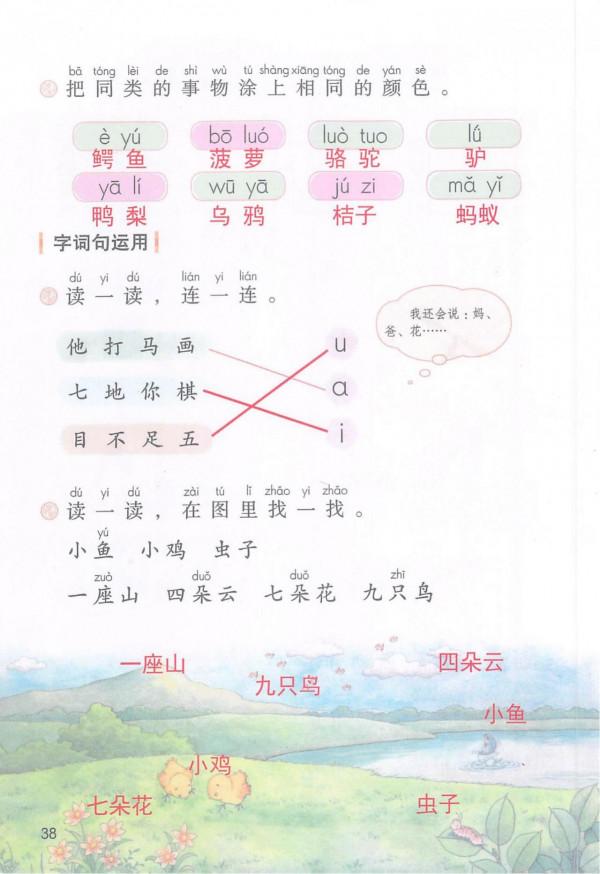 bǎ tóng lèi de shì wù tú shàng xiāng tóng de yán sè
把同类的事物涂上相同的颜色。
è yú bō luó luò tuo lǘ
鳄鱼 菠萝 骆驼 驴
yā lí wū yā jú zi mǎ yǐ
鸭梨 乌鸦 桔子 蚂蚁
字词句运用
dú yi dú lián yi lián
读一读，连一连。
我还会说：妈、
爸、花……
他打马画 u
七地你棋 ɑ
目不足五 i
dú yi dú zài tú lǐ zhǎo yi zhǎo
读一读，在图里找一找。
yú
小鱼 小鸡 虫子
zuò duǒ duǒ zhī
一座山 四朵云 七朵花 九只鸟
一座山 四朵云
九只鸟
小鱼
小鸡
七朵花 虫子
38